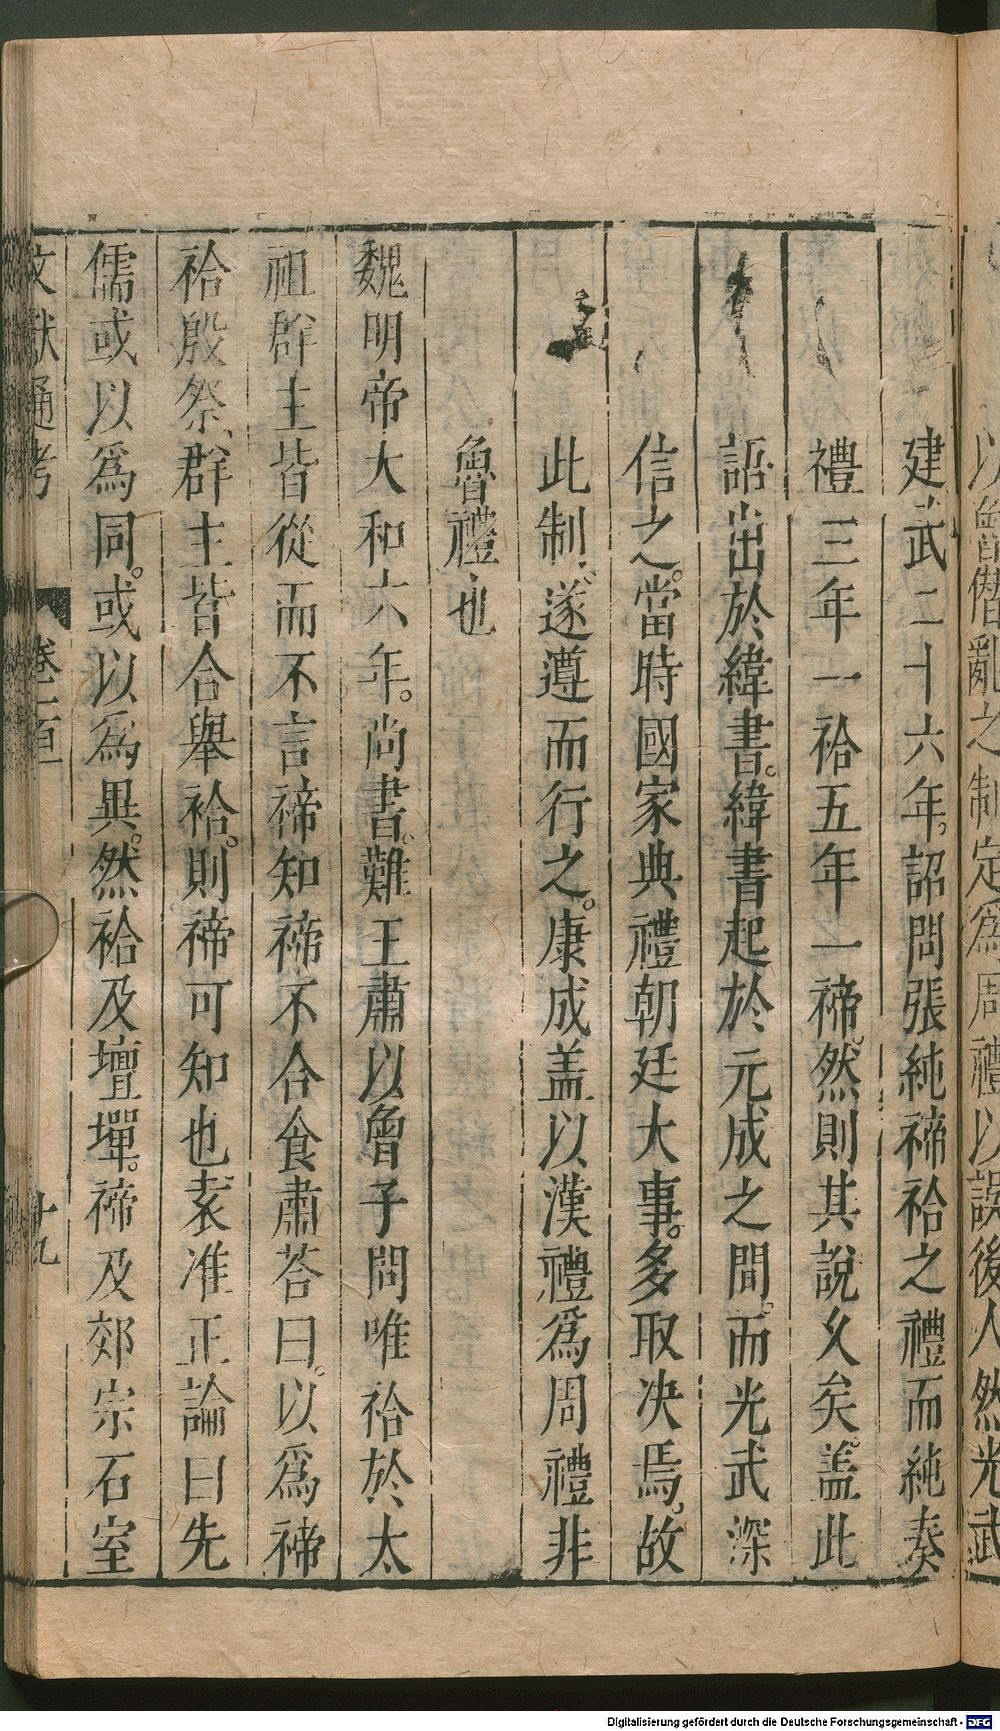 以魯僭亂之制定爲周禮以誤後人然光武
建武二十六年詔問張純禘祫之禮而純奏
禮三年一祫五年一禘。然則其說久矣。蓋此
語出於緯書。緯書起於元成之間。而光武深
信之。當時國家典禮朝廷大事。多取决焉。故
此制遂遵而行之。康成盖以漢禮爲周禮非
魯禮也
魏明帝大和六年。尚書難王肅以曾子問唯祫於太
祖群主皆從而不言禘知禘不合食肅荅曰。以爲禘
祫殷祭、群主皆合舉祫。則禘可知也袁准正論曰先
儒或以爲同。或以爲異。然祫及壇墠。禘及郊宗石室
文獻通考
卷一百
十九
Digitalisierung gefördert durch die Deutsche Forschungsgemeinschaft - DFG